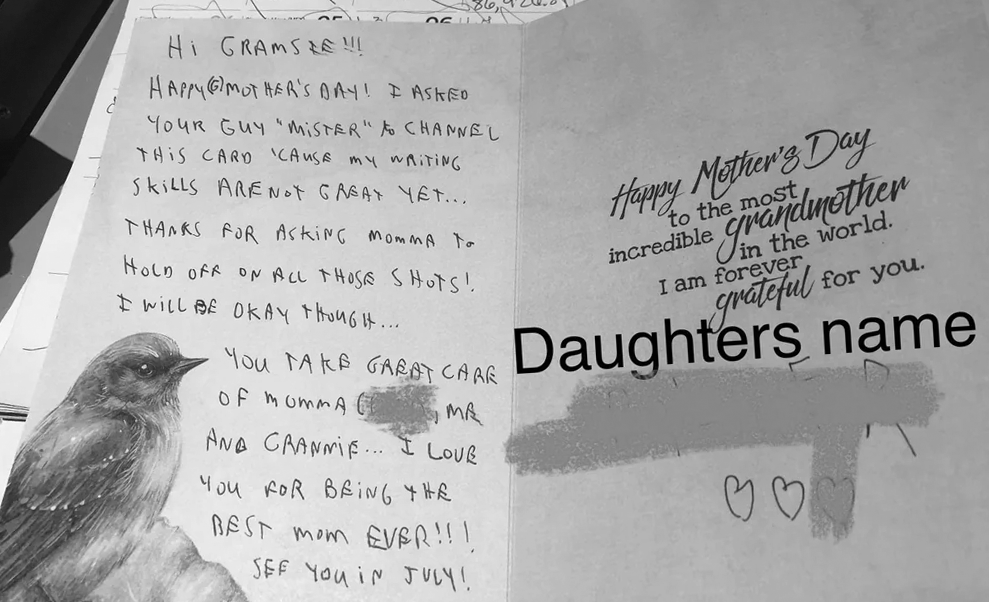 86,420.8
05
06
HI GRAMSIE!!!
HAPPY(G)MOTHER'S DAY! I ASKED
YOUR GUY "MISTER" to CHANNEL
THIS CARD 'CAUSE MY WRITING
SKILLS ARE NOT GREAT YET...
THANKS FOR ASKING MOMMA To
HOLD OFF ON ALL THOSE SHOTS!
I WILL BE OKAY THOUGH...
YOU TAKE GREAT CARE
OF MOMMA (, ME
AND GRANNIE... I LOVE
YOU FOR BEING THE
BEST MOM EVER!!!
SEE YOU IN JULY!
Happy Mother's Day
to the most
incredible grandmother
in the world.
I am forever
grateful for you.
Daughters name